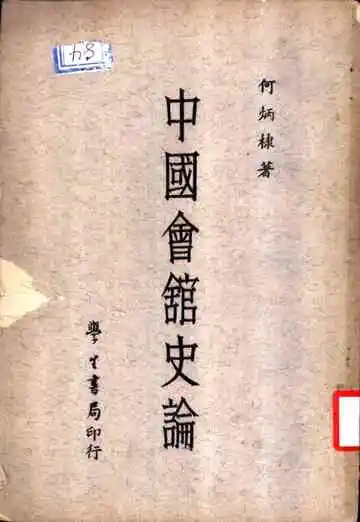 何炳棣著
中國會舘史論
學生書局印行